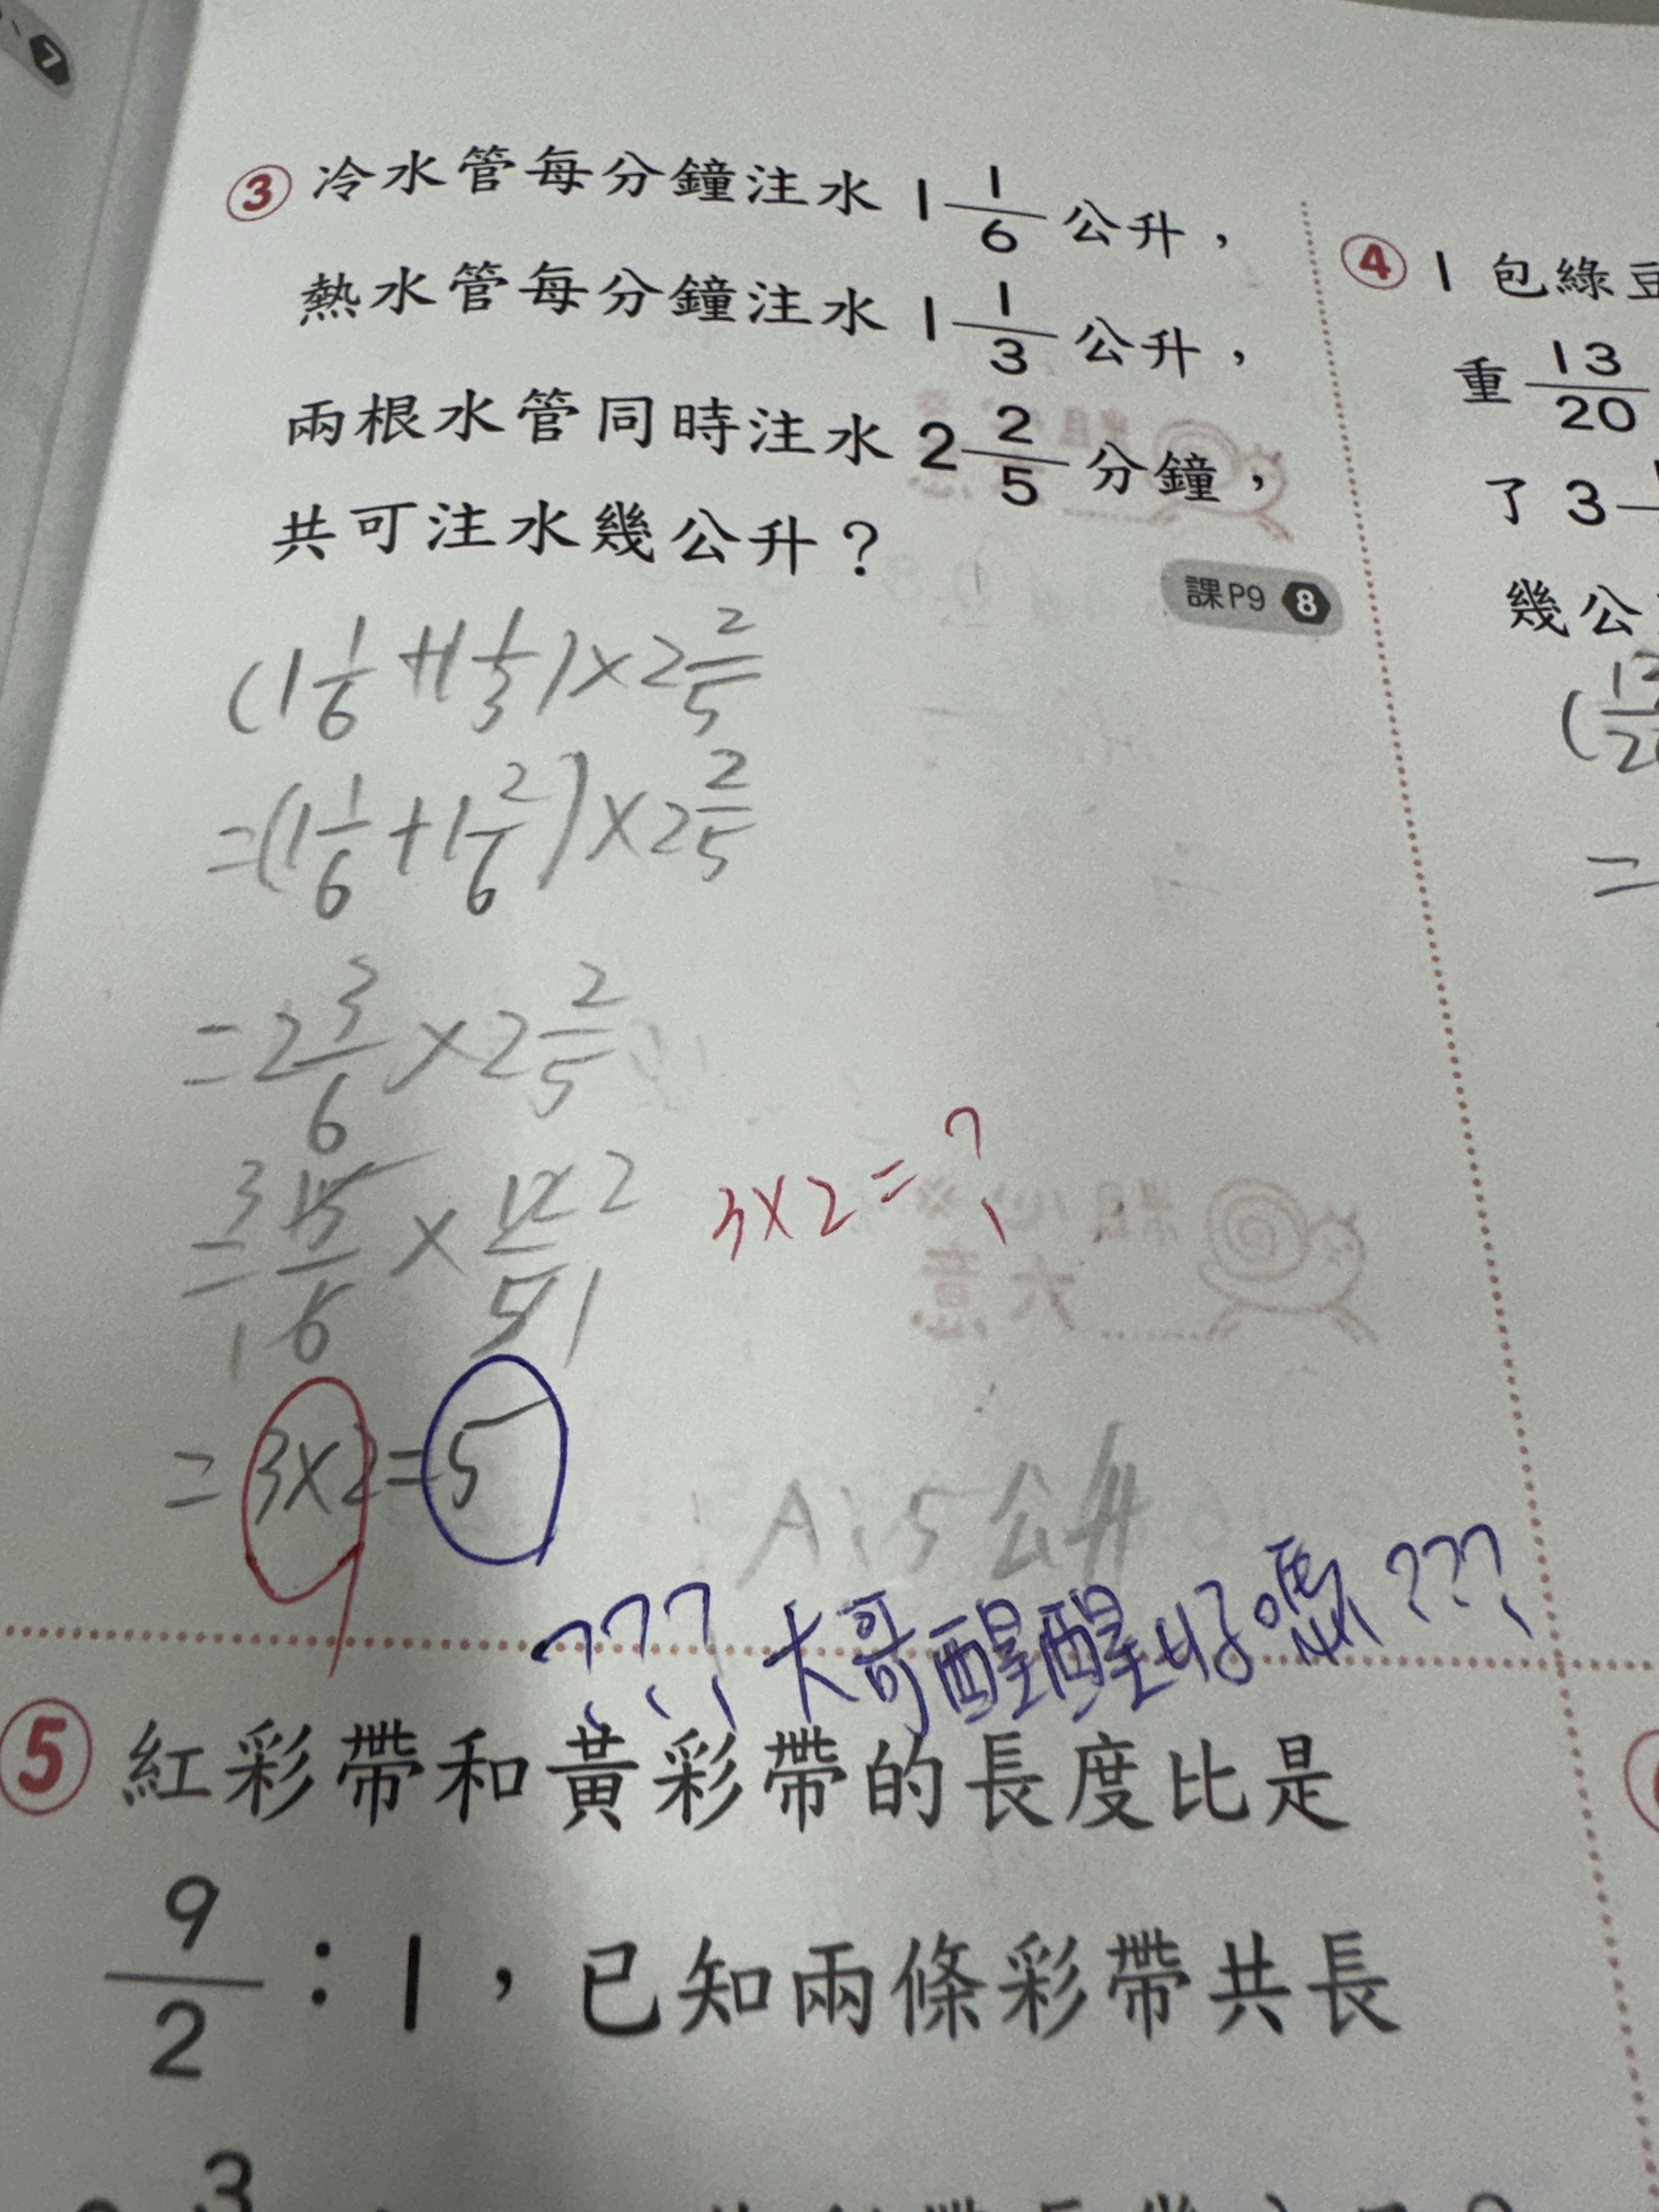 7
③ 冷水管每分鐘注水 1 1/6 公升，
熱水管每分鐘注水 1 1/3 公升，
兩根水管同時注水 2 2/5 分鐘，
共可注水幾公升？
課P9 8
(1 1/6 + 1 1/3) × 2 2/5
= (1 1/6 + 1 2/6) × 2 2/5
= 2 3/6 × 2 2/5
= 15/6 × 12/5
3 2
1 1
3×2=?
= 3×2=5
A：5公升
??? 大哥醒醒好嗎???
④ 1 包綠豆
重 13/20
了 3
幾公
=
⑤ 紅彩帶和黃彩帶的長度比是
9/2：1，已知兩條彩帶共長
3